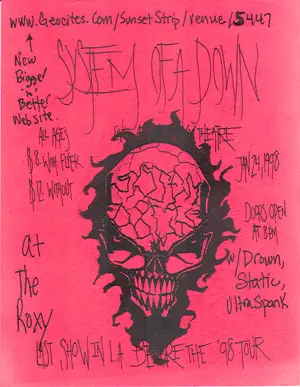 www.Geocites.Com/SunsetStrip/venue/5447
New
Bigger
'n'
Better
Website.
SYSTEM OF A DOWN
ALL AGES
$8. WITH FLYER
$12. WITHOUT
THEATRE
JAN 24, 1998
DOORS OPEN
AT 8PM
at
The
Roxy
w/ Drown,
Static,
Ultraspank
LAST SHOW IN L.A. BEFORE THE '98 TOUR